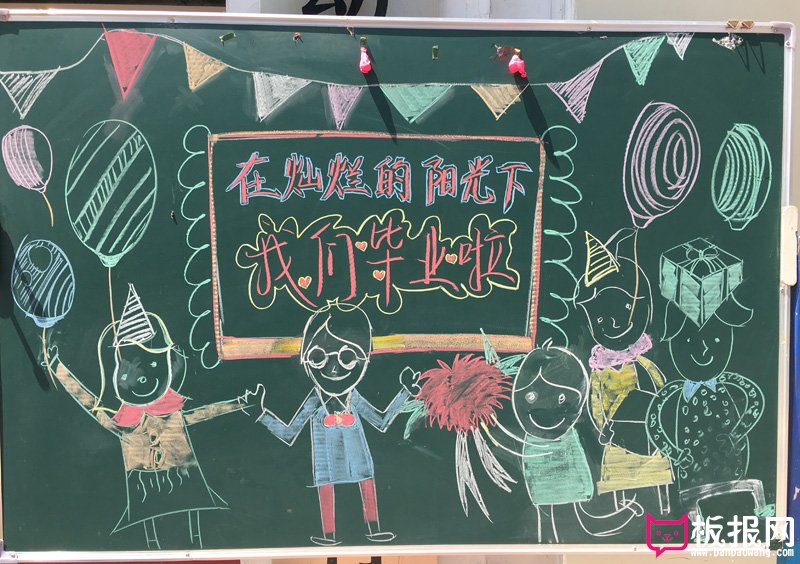 在灿烂的阳光下
我们毕业啦
板报网
www.banbaowang.com